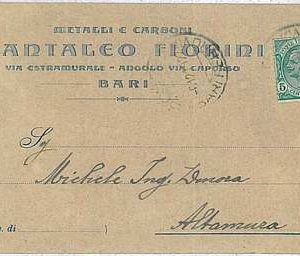 METALLI E CARBONI
ANTALEO FIORINI
VIA ESTRAMURALE - ANGOLO VIA CAPURSO
BARI
Sig
Michele Ing. Denora
Altamura
. di
5